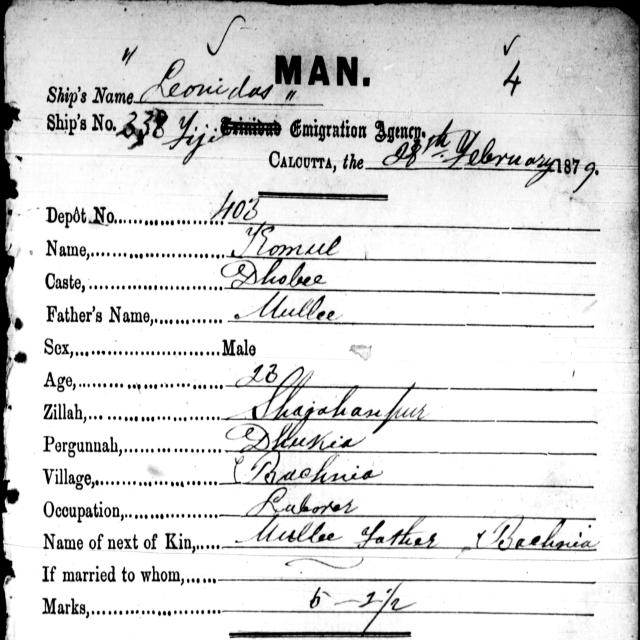 MAN. 4
Ship's Name "Leonidas"
Ship's No. 338 Fiji Trinidad Emigration Agency.
CALCUTTA, the 28th February 1879.
Depôt No. 403
Name, Komul
Caste, Dhobee
Father's Name, Mullee
Sex, Male
Age, 23
Zillah, Shajahanpur
Pergunnah, Dhukia
Village, Bachnia
Occupation, Laborer
Name of next of Kin, Mullee Father Bachnia
If married to whom,
Marks, 5 - 2 1/2